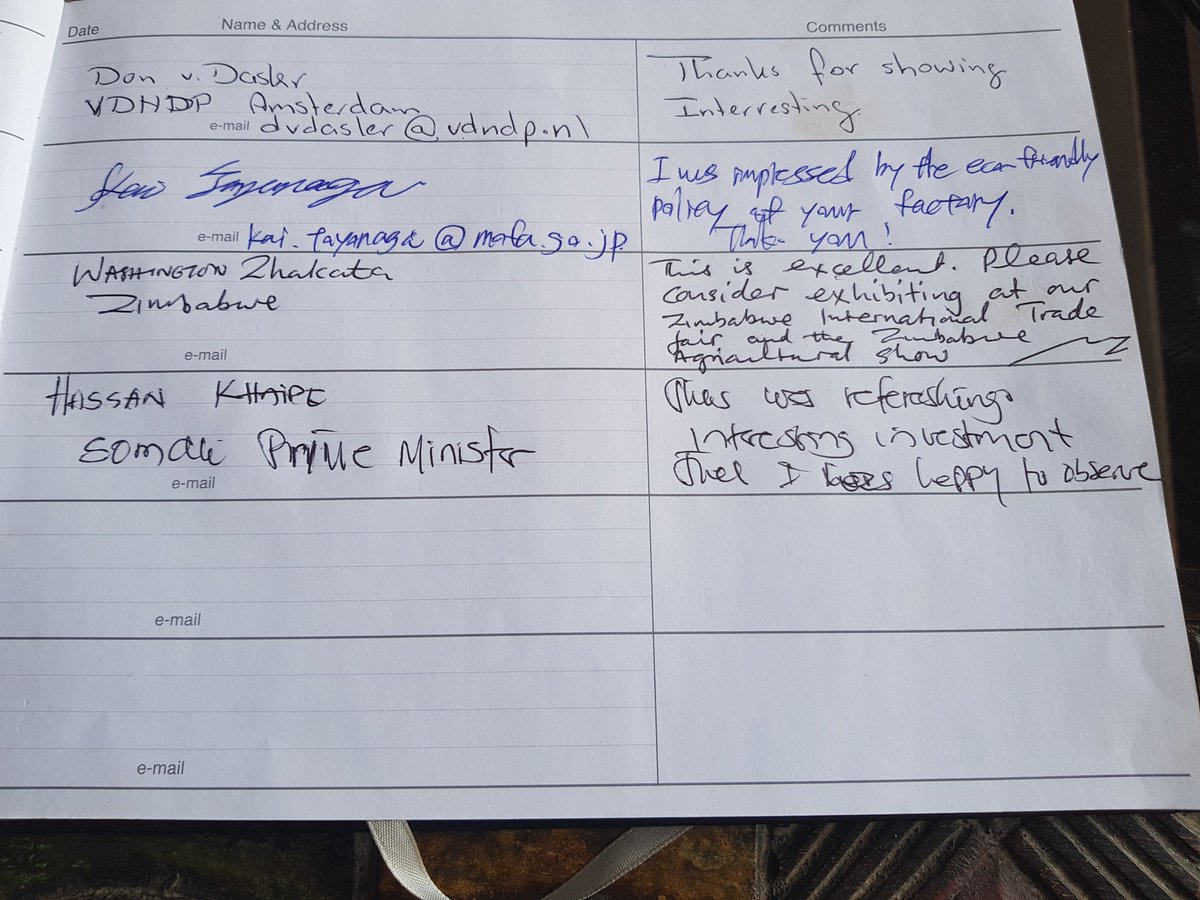 Date Name & Address Comments
Don v. Dasler
VDHDP Amsterdam
e-mail dvdasler@vdndp.nl
Thanks for showing
Interresting.
Kai
e-mail kai.tayanaga@mofa.go.jp
I was impressed by the eco-friendly
policy of your factory.
Thank you!
WASHINGTON Zhakata
Zimbabwe
e-mail
This is excellent. Please
consider exhibiting at our
Zimbabwe International Trade
fair and the Zimbabwe
Agricultural show
HASSAN KHAIRE
Somali Prime Minister
e-mail
was referashing.
Interesting investment
I happy to observe
e-mail
e-mail